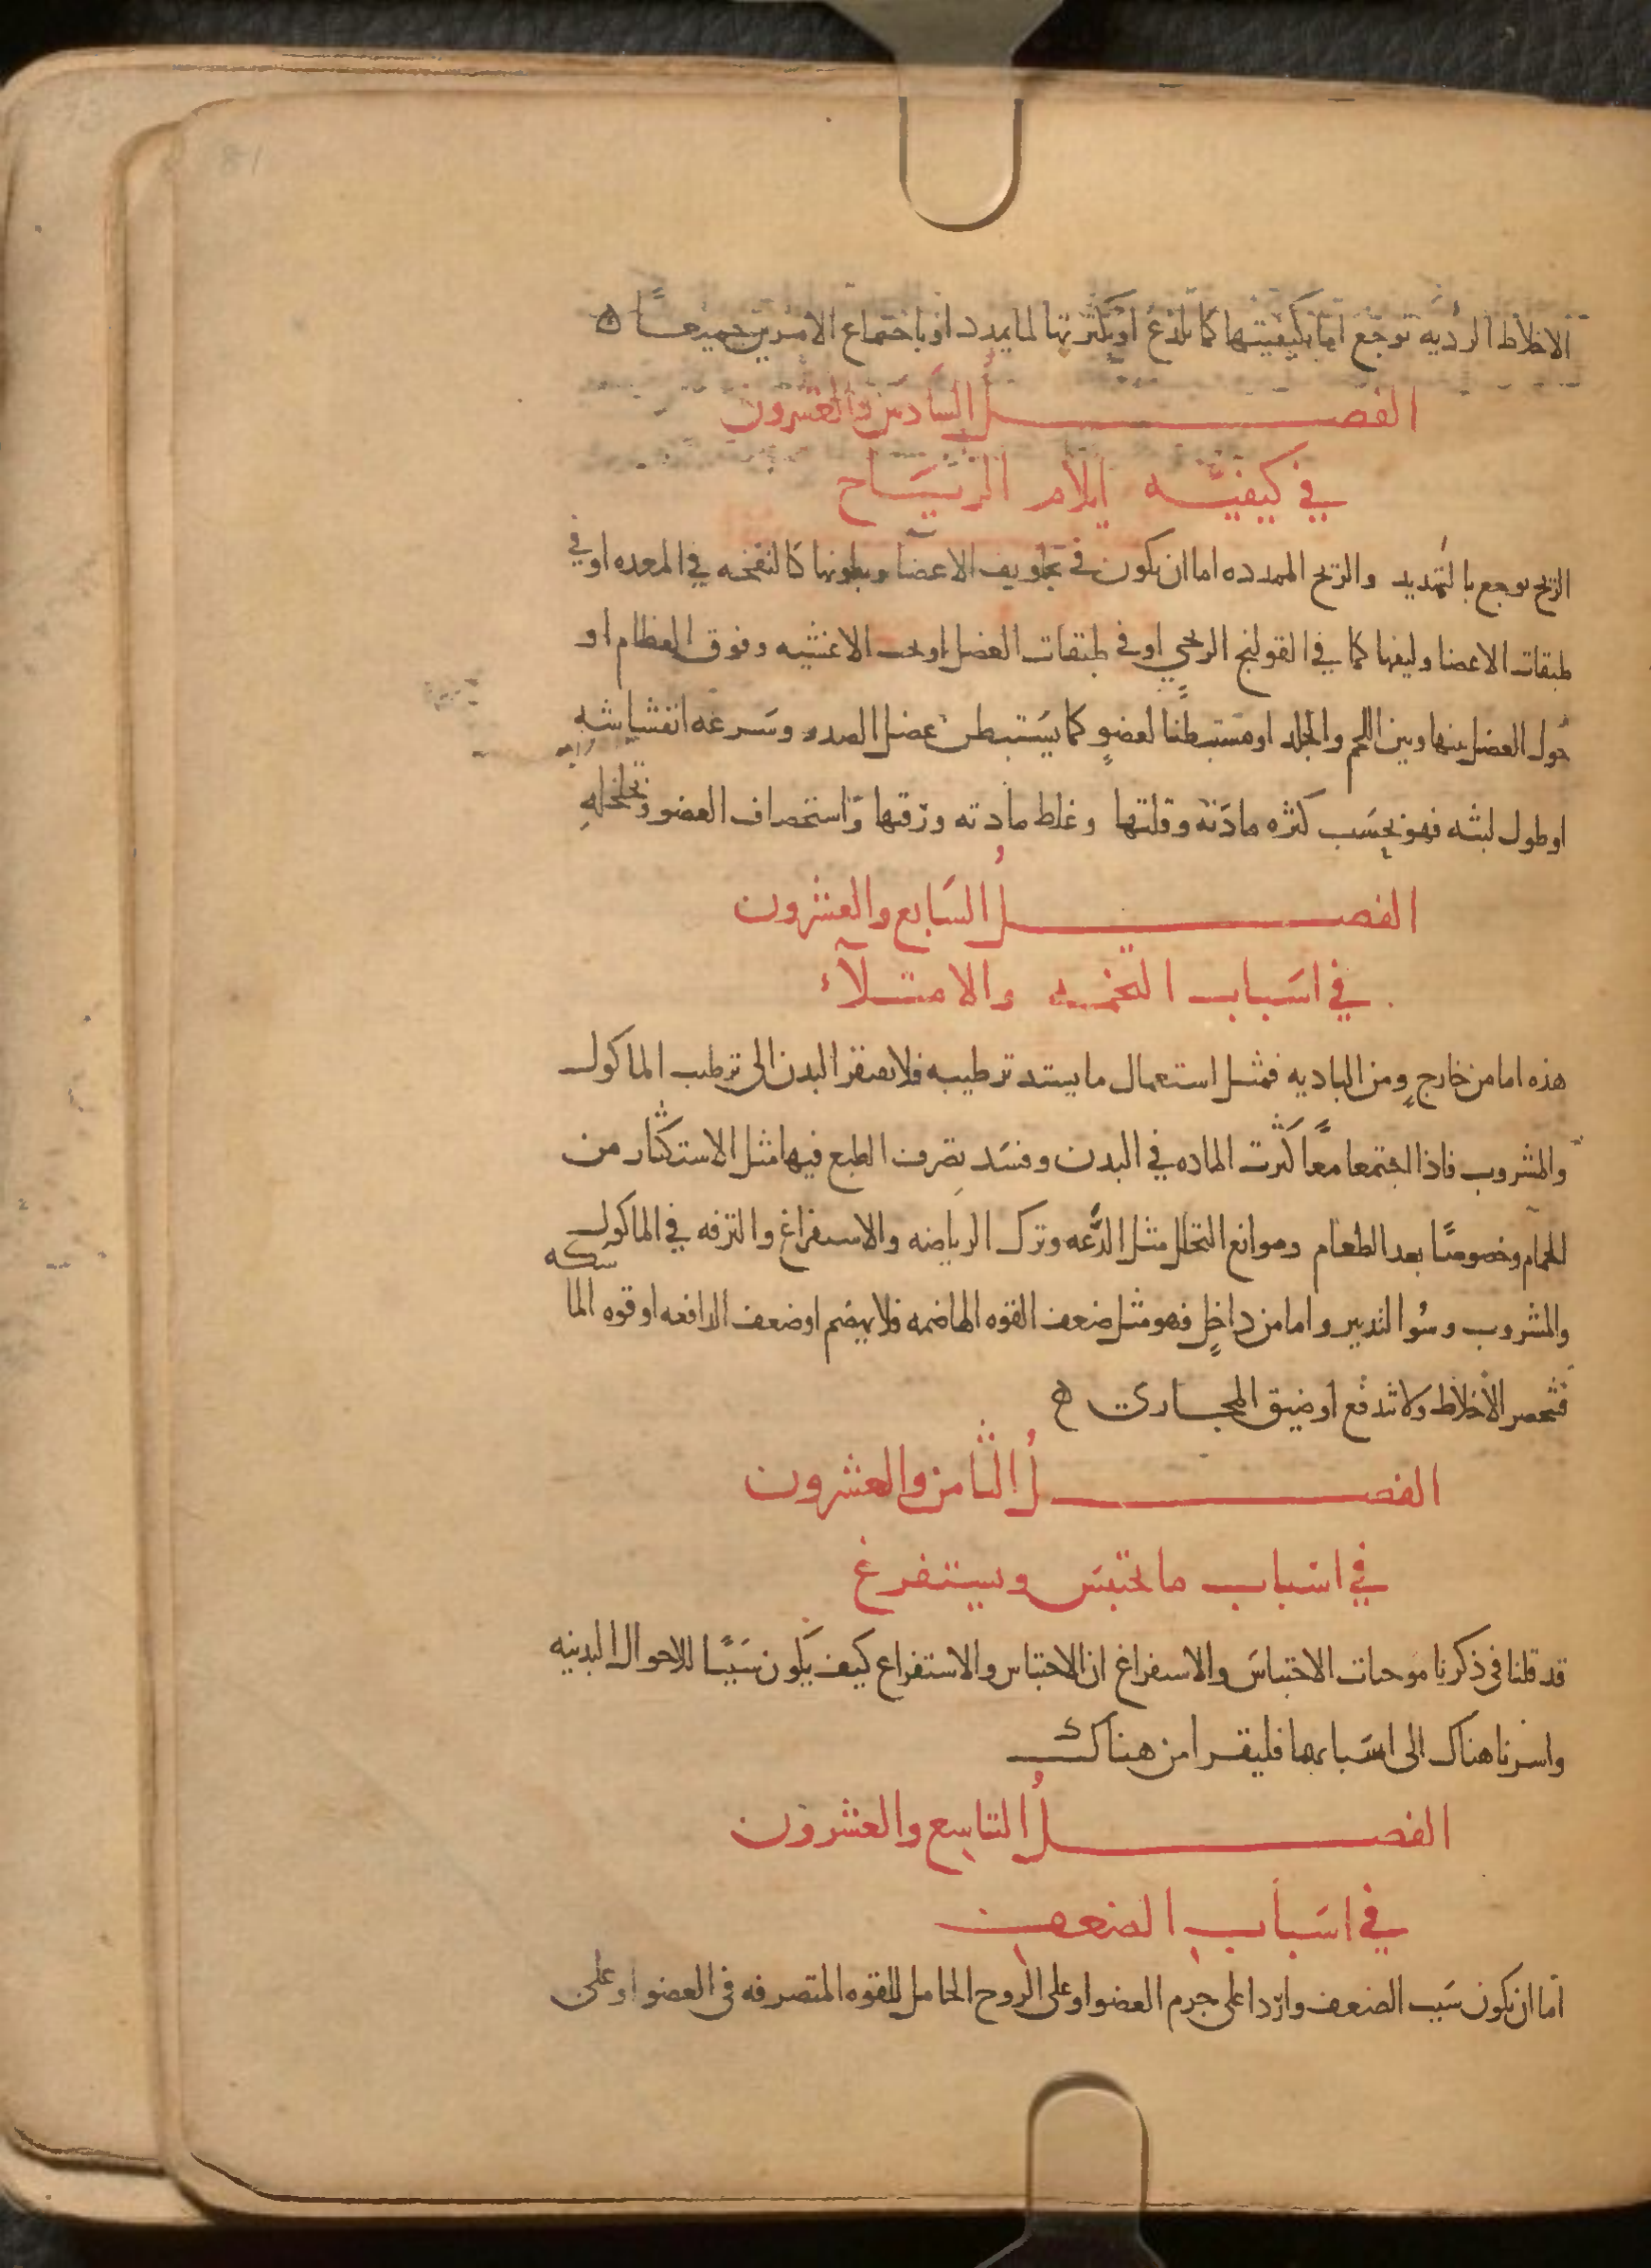 81
الاخلاط الرديه توجع اما بكيفيتها كما تلذع او بكثرتها لما يمدد او باجتماع الامرين جميعا ه
الفصل السادس والعشرون
في كيفيه ايلام الرياح
الريح توجع بالتمديد والريح الممدده اما ان يكون في تجاويف الاعضا وبطونها كالنفخه في المعده او في
طبقات الاعضا وليفها كما في القولنج الريحي او في طبقات العضل او تحت الاغشيه وفوق العظام او
حول العضل بينها وبين اللحم والجلد او مستبطنا لعضو كما يستبطن عضل الصدر وسرعه انفشاشه
او طول لبثه فهو بحسب كثره مادته وقلتها وغلظ مادته ورقتها واستحصاف العضو وتخلخله
الفصل السابع والعشرون
في اسباب التخمه والامتلآء
هذه اما من خارج ومن الباديه فمثل استعمال ما يشتد ترطيبه فلا يفتقر البدن الى ترطيب الماكول
والمشروب فاذا اجتمعا معا كثرت الماده في البدن وفسد تصرف الطبع فيها مثل الاستكثار من
الحمام وخصوصا بعد الطعام وموانع التحلل مثل الدعه وترك الرياضه والاستفراغ والترفه في الماكول
والمشروب وسو التدبير واما من داخل فهو مثل ضعف القوه الهاضمه فلا يهضم او ضعف الدافعه او قوه الما
سكه
فتحصر الاخلاط ولا تندفع او ضيق المجاري ه
الفصل الثامن والعشرون
في اسباب ما يحتبس ويستفرغ
قد قلنا في ذكرنا موجبات الاحتباس والاستفراغ ان الاحتباس والاستفراغ كيف يكون سببا للاحوال البدنيه
واشرنا هناك الى اسبابهما فليقرا من هناك
الفصل التاسع والعشرون
في اسباب الضعف
اما ان يكون سبب الضعف واردا على جرم العضو او على الروح الحامل للقوه المتصرفه في العضو او على